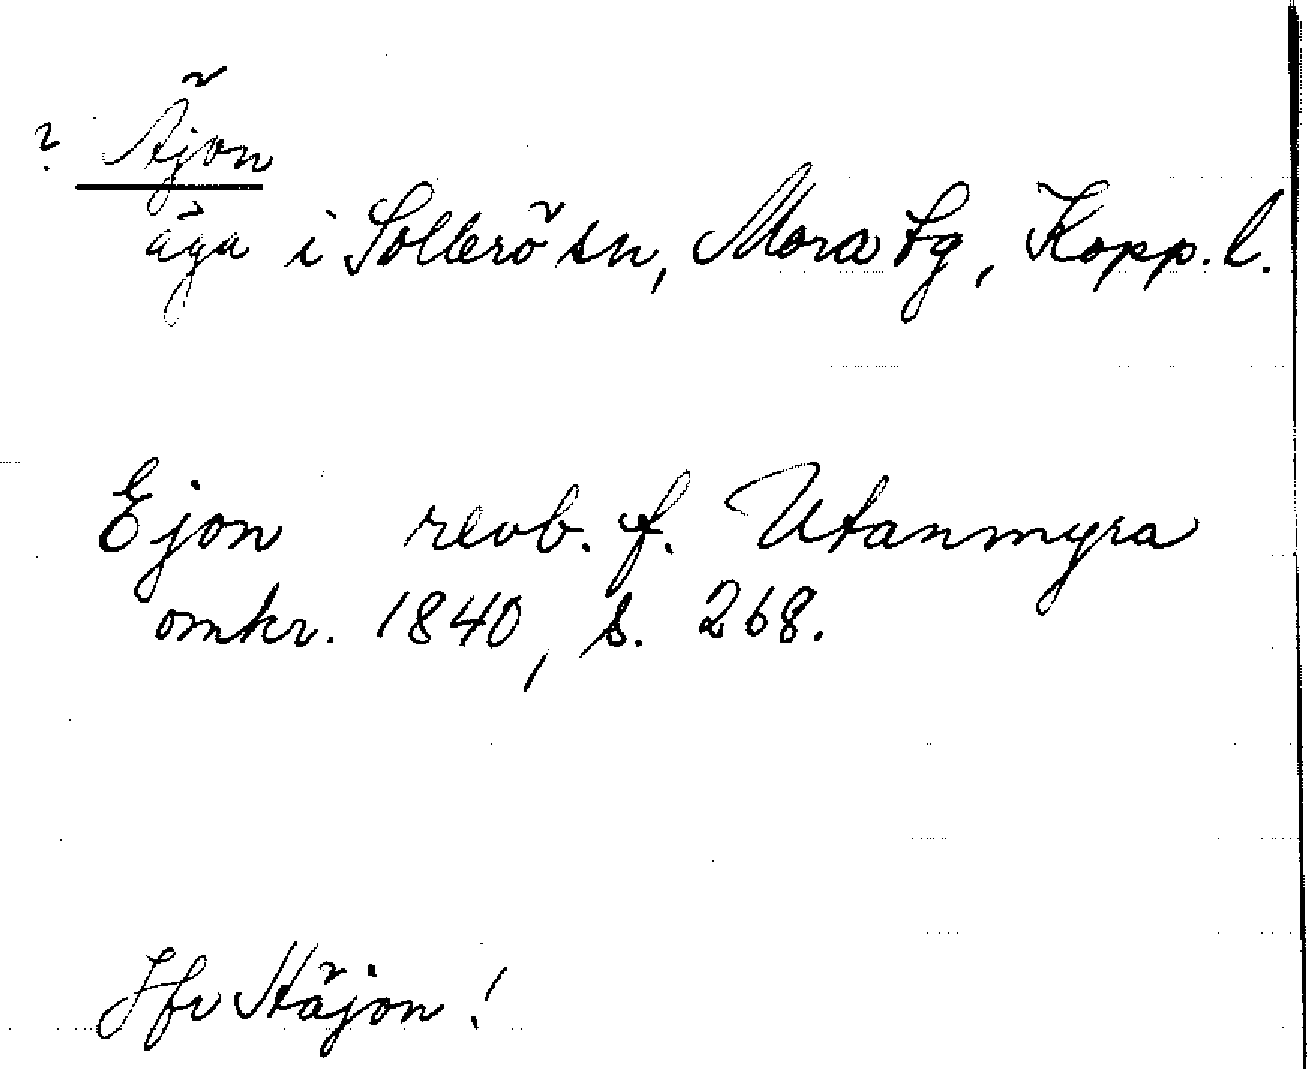 ? Äjon
äga i Sollerö sn, Mora tg, Kopp. l.
Ejon revb. f. Utanmyra
omkr. 1840, s. 268.
Jfr Häjon!